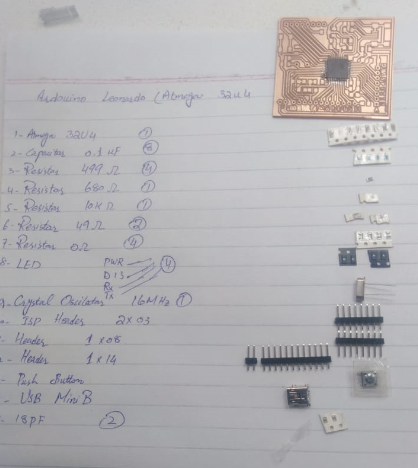 Arduino Leonardo (Atmega 32u4
1- Atmega 32U4 ①
2- Capacitor 0.1 uF ⑧
3- Resistor 499 Ω ④
4- Resistor 680 Ω ①
5- Resistor 10K Ω ①
6- Resistor 49 Ω ②
7- Resistor 0Ω ④
8- LED PWR
D13 ④
Rx
Tx
- Crystal Oscilator 16MHz ①
- ISP Header 2 x 03
- Header 1 x 08
- Header 1 x 14
- Push Button
- USB Mini B
- 18pF ②